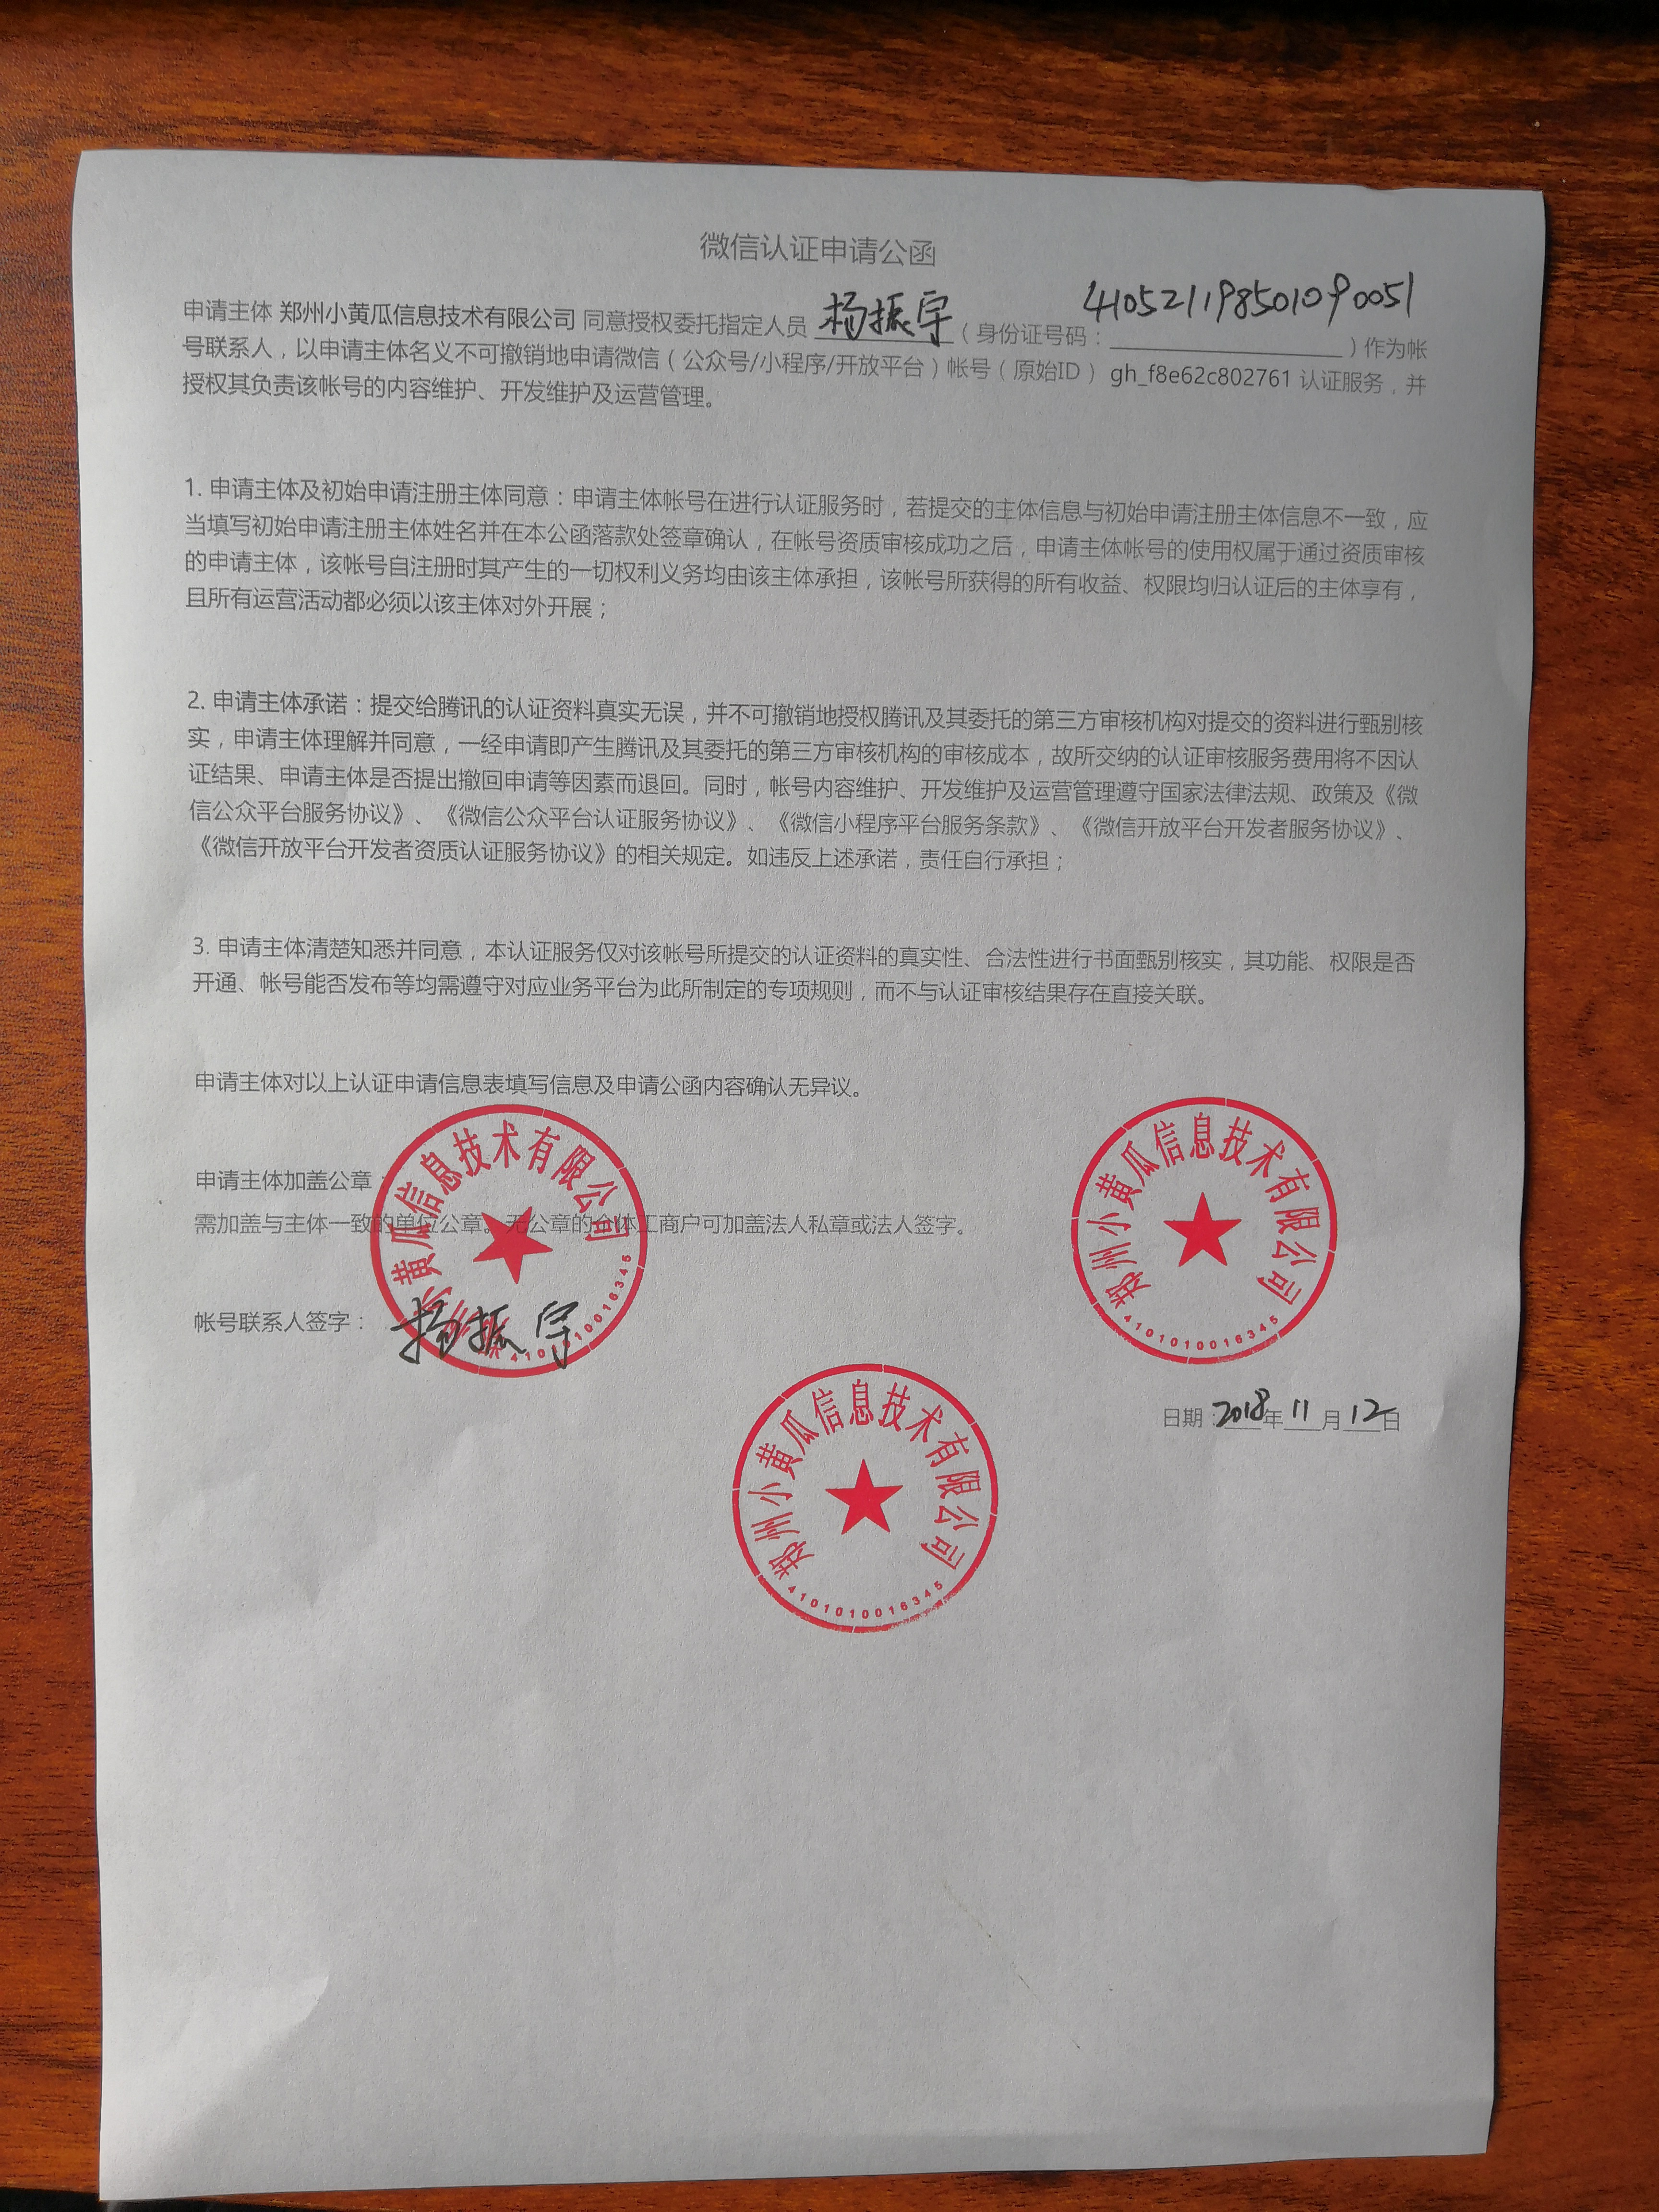 微信认证申请公函
申请主体 郑州小黄瓜信息技术有限公司 同意授权委托指定人员 杨振宇 （身份证号码：410521198501090051）作为帐
号联系人，以申请主体名义不可撤销地申请微信（公众号/小程序/开放平台）帐号（原始ID） gh_f8e62c802761 认证服务，并
授权其负责该帐号的内容维护、开发维护及运营管理。
1. 申请主体及初始申请注册主体同意：申请主体帐号在进行认证服务时，若提交的主体信息与初始申请注册主体信息不一致，应
当填写初始申请注册主体姓名并在本公函落款处签章确认，在帐号资质审核成功之后，申请主体帐号的使用权属于通过资质审核
的申请主体，该帐号自注册时其产生的一切权利义务均由该主体承担，该帐号所获得的所有收益、权限均归认证后的主体享有，
且所有运营活动都必须以该主体对外开展；
2. 申请主体承诺：提交给腾讯的认证资料真实无误，并不可撤销地授权腾讯及其委托的第三方审核机构对提交的资料进行甄别核
实，申请主体理解并同意，一经申请即产生腾讯及其委托的第三方审核机构的审核成本，故所交纳的认证审核服务费用将不因认
证结果、申请主体是否提出撤回申请等因素而退回。同时，帐号内容维护、开发维护及运营管理遵守国家法律法规、政策及《微
信公众平台服务协议》、《微信公众平台认证服务协议》、《微信小程序平台服务条款》、《微信开放平台开发者服务协议》、
《微信开放平台开发者资质认证服务协议》的相关规定。如违反上述承诺，责任自行承担；
3. 申请主体清楚知悉并同意，本认证服务仅对该帐号所提交的认证资料的真实性、合法性进行书面甄别核实，其功能、权限是否
开通、帐号能否发布等均需遵守对应业务平台为此所制定的专项规则，而不与认证审核结果存在直接关联。
申请主体对以上认证申请信息表填写信息及申请公函内容确认无异议。
申请主体加盖公章：
需加盖与主体一致的单位公章。无公章的个体工商户可加盖法人私章或法人签字。
郑州小黄瓜信息技术有限公司
4101010016345
郑州小黄瓜信息技术有限公司
4101010016345
帐号联系人签字： 杨振宇
日期：2018年11月12日
郑州小黄瓜信息技术有限公司
4101010016345